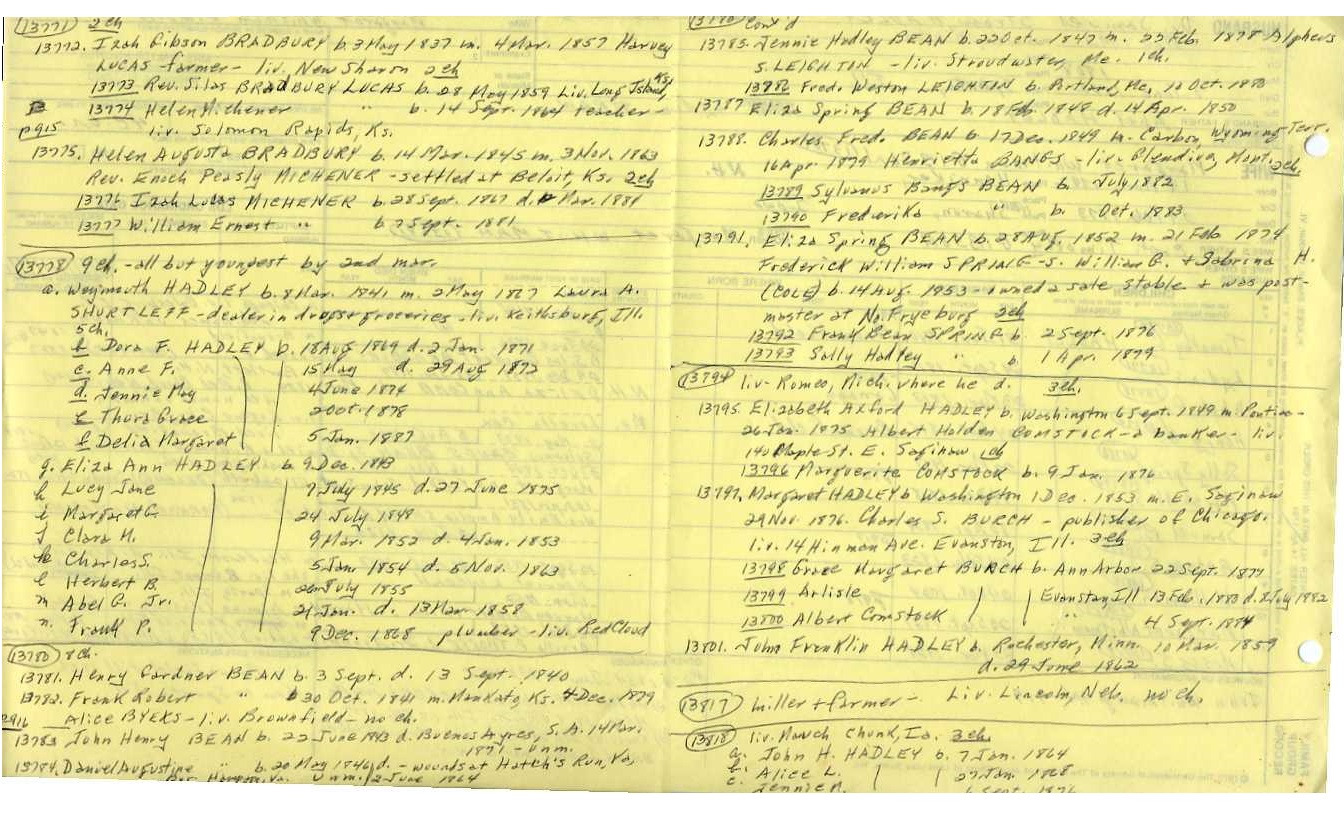 13771 2ch
13772. Izah Gibson BRADBURY b. 3 May 1837 m. 4 Mar. 1857 Harvey
LUCAS farmer - liv. New Sharon 2ch
13773 Rev. Silas BRADBURY LUCAS b. 28 May 1859 Liv. Long Island, Ks.
13774 Helen Michener " b. 14 Sept. 1864 teacher -
p915 liv. Solomon Rapids, Ks.
13775. Helen Augusta BRADBURY b. 14 Mar. 1845 m. 3 Nov. 1863
Rev. Enoch Peasly MICHENER - settled at Beloit, Ks. 2ch
13776 Izah Lucas MICHENER b. 28 Sept. 1867 d. Mar. 1881
13777 William Ernest " b 7 Sept. 1881
13778 9ch. - all but youngest by 2nd mar.
a. Weymouth HADLEY b. 8 Mar. 1841 m. 2 May 1867 Laura A.
SHURTLEFF - dealer in drugs + groceries - liv. Keithsburg, Ill.
5ch.
b Dora F. HADLEY b. 18 Aug 1869 d. 2 Jan. 1871
c. Anne F. 15 May d. 29 Aug 1872
d. Jennie May 4 June 1874
e Thora Grace 2 Oct. 1878
f Delia Margaret 5 Jan. 1887
g. Eliza Ann HADLEY b. 9 Dec. 1843
h Lucy Jane 7 July 1845 d. 27 June 1875
i Margaret G. 24 July 1849
j Clara H. 9 Mar. 1852 d. 4 Jan. 1853
k Charles S. 5 Jan 1854 d. 5 Nov. 1863
l Herbert B. July 1855
m Abel G. Jr. 21 Jan. d. 13 Mar. 1858
n. Frank P. 9 Dec. 1868 plumber - liv. Red Cloud
13780 8ch.
13781. Henry Gardner BEAN b. 3 Sept. d. 13 Sept. 1840
13782. Frank Robert " b 30 Oct. 1841 m. Mankato, Ks. 4 Dec. 1879
2916 Alice BYEKS - liv. Brownfield - no ch.
13783 John Henry BEAN b. 22 June 1843 d. Buenos Ayres, S.A. 14 Mar.
1871 - unm.
13784. Daniel Augustine " b. 20 May 1846 d. - wounds at Hatch's Run, Va,
Va. unm. 2 June 1864
13780 Cont'd
13785. Jennie Hadley BEAN b. 22 Oct. 1847 m. 22 Feb. 1878 Alpheus
S. LEIGHTON - liv. Stroudwater, Me. 1ch.
13786 Fred. Weston LEIGHTIN b. Portland, Me, 10 Oct. 1880
13787 Eliza Spring BEAN b. 18 Feb. 1848 d. 14 Apr. 1850
13788. Charles Fred. BEAN b. 17 Dec. 1849 m. Carbon, Wyoming Terr.
16 Apr 1879 Henrietta BANGS - liv. Glendive, Mont. 2ch.
13789 Sylvanus Bangs BEAN b. July 1882
13790 Frederika " b. Oct. 1883
13791. Eliza Spring BEAN b. 28 Aug. 1852 m. 21 Feb 1874
Frederick William SPRING - s. William G. + Sabrina H.
(COLE) b. 14 Aug. 1853 - owned a sale stable + was post-
master at No. Fryeburg 2ch
13792 Frank Bean SPRING b. 2 Sept. 1876
13793 Sally Hadley " b. 1 Apr. 1879
13794 liv. Romeo, Mich. where he d. 3ch.
13795. Elizabeth Axford HADLEY b. Washington 6 Sept. 1849 m. Pontiac -
26 Jan. 1875 Albert Holden COMSTOCK - a banker - liv.
140 Maple St. E. Saginaw 1ch
13796 Marguerite COMSTOCK b. 9 Jan. 1876
13797. Margaret HADLEY b Washington 1 Dec. 1853 m. E. Saginaw
29 Nov 1876. Charles S. BURCH - publisher of Chicago.
liv. 14 Hinman Ave. Evanston, Ill. 3ch
13798 Grace Margaret BURCH b. Ann Arbor 22 Sept. 1877
13799 Arlisle Evanston, Ill 13 Feb. 1883 d. 2 July 1882
13800 Albert Comstock " " 4 Sept. 1884
13801. John Franklin HADLEY b. Rochester, Minn. 10 Mar. 1859
d. 29 June 1862
13817 miller + farmer - Liv. Lincoln, Neb. no ch.
13818 liv. Mauch Chunk, Ia. 3ch
a. John H. HADLEY b. 7 Jan. 1864
b. Alice L. 27 Jan. 1868
c. Jennie M. Sept. 1876